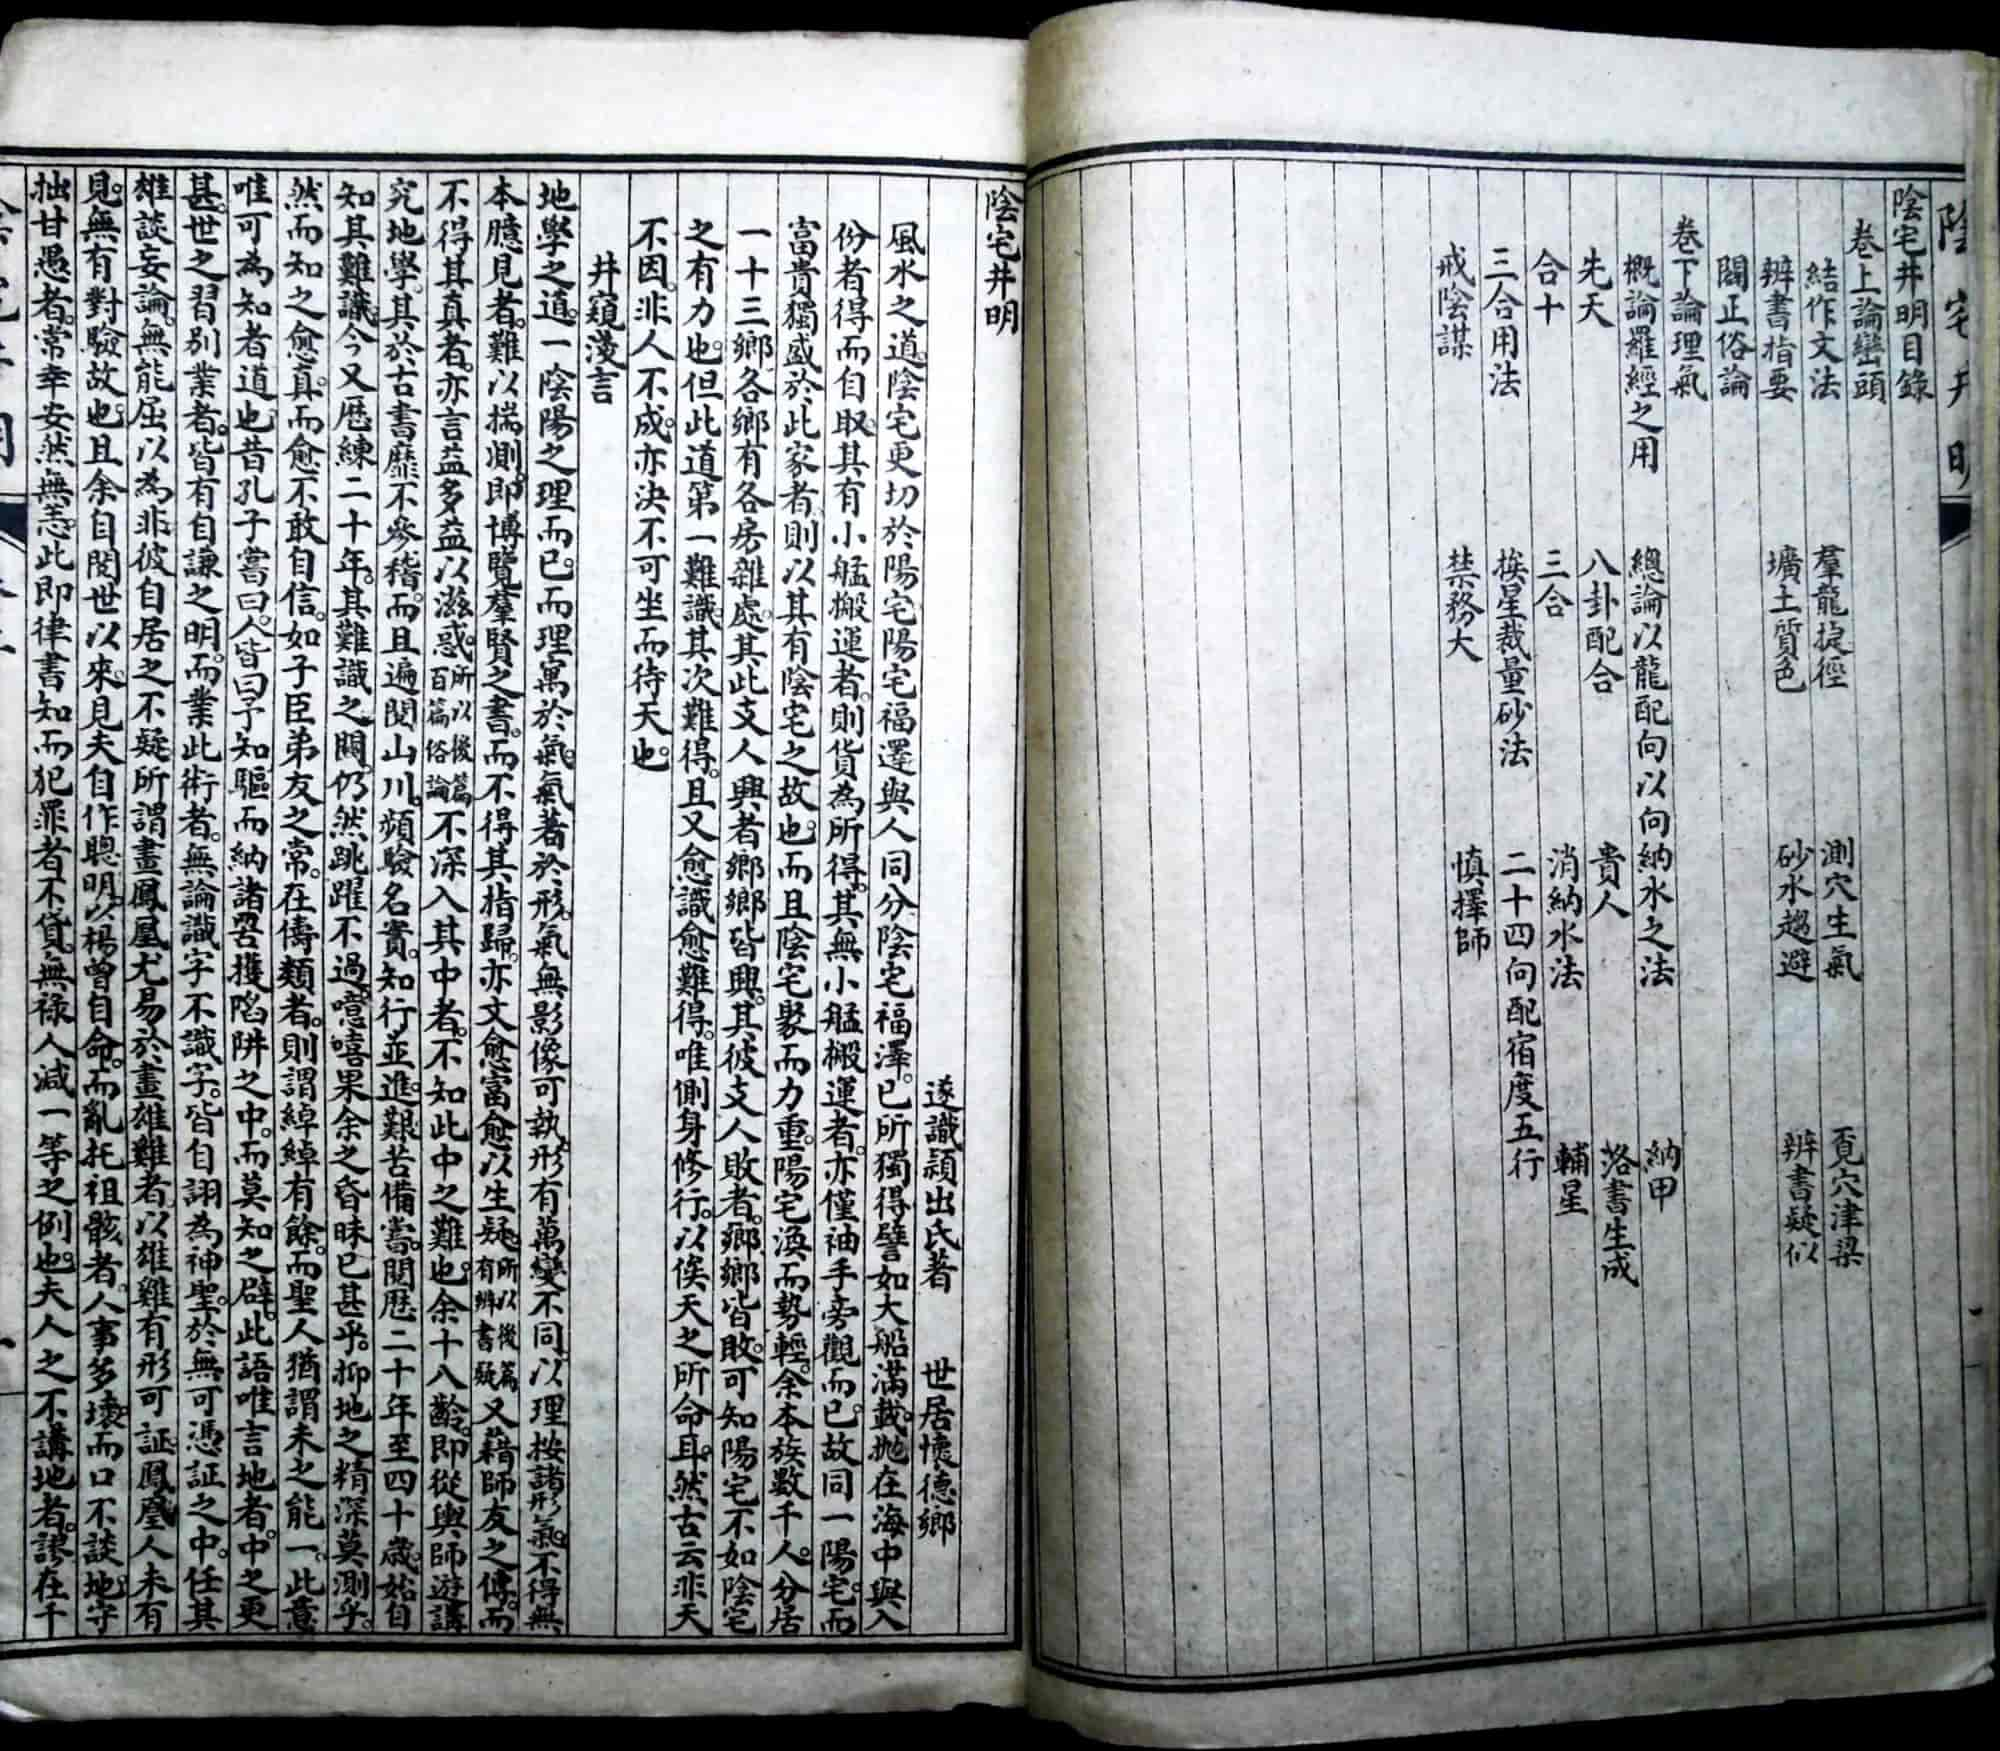 陰宅井明
陰宅井明目錄
卷上論巒頭
結作文法 羣龍捷徑 測穴生氣 覔穴津梁
辨書指要 壙土質色 砂水趨避 辨書疑似
闢正俗論
卷下論理氣
概論羅經之用 總論以龍配向以向納水之法 納甲
先天 八卦配合 貴人 洛書生成
合十 三合 消納水法 輔星
三合用法 挨星裁量砂法 二十四向配宿度五行
戒陰謀 禁務大 慎擇師
陰宅井明
遂識穎出氏著 世居懷德鄉
風水之道。陰宅更切於陽宅陽宅福澤與人同分陰宅福澤。已所獨得譬如大船滿載。拋在海中與入
份者得而自取。其有小艋搬運者。則貨為所得。其無小艋搬運者。亦僅袖手旁觀而已。故同一陽宅。而
富貴獨盛於此家者。則以其有陰宅之故也。而且陰宅聚而力重。陽宅渙而勢輕。余本族數千人。分居
一十三鄉。各鄉有各房雜處。其此支人興者。鄉鄉皆興。其彼支人敗者。鄉鄉皆敗。可知陽宅不如陰宅
之有力也。但此道第一難識。其次難得。且又愈識愈難得。唯側身修行。以俟天之所命耳。然古云非天
不因。非人不成。亦決不可坐而待天也。
井窺漫言
地學之道。一陰陽之理而已。而理寓於氣。氣著於形。氣無影像可執。形有萬變不同。以理按諸形氣。不得無
本臆見者。難以揣測。即博覽羣賢之書。而不得其指歸。亦文愈富愈以生疑。所以後篇有辨書疑又藉師友之傳。而
不得其真者。亦言益多益以滋惑。所以後篇百篇俗論不深入其中者。不知此中之難也。余十八齡。即從輿師遊講
究地學。其於古書靡不參稽。而且遍閱山川。頻驗名實。知行並進。艱苦備嘗。閱歷二十年至四十歲。始自
知其難識。今又歷練二十年。其難識之關。仍然跳躍不過。噫嘻果余之昏昧已甚乎。抑地之精深莫測乎。
然而知之愈真。而愈不敢自信。如子臣弟友之常。在儔類者。則謂綽綽有餘。而聖人猶謂未之能一。此意
唯可為知者道也。昔孔子嘗曰。人皆曰予知驅而納諸罟擭陷阱之中。而莫知之辟。此語唯言地者。中之更
甚。世之習別業者。皆有自謙之明。而業此術者。無論識字不識字。皆自詡為神聖。於無可憑証之中。任其
雄談妄論。無能屈以為非彼自居之不疑。所謂畫鳳凰尤易於畫雄雞者。以雄雞有形可証。鳳凰人未有
見。無有對驗故也。且余自閱世以來。見夫自作聰明。以楊曾自命。而亂扦祖骸者。人事多壞。而口不談地。守
拙甘愚者。常幸安然無恙。此即律書知而犯罪者不貸。無祿人減一等之例也。夫人之不講地者。謬在千